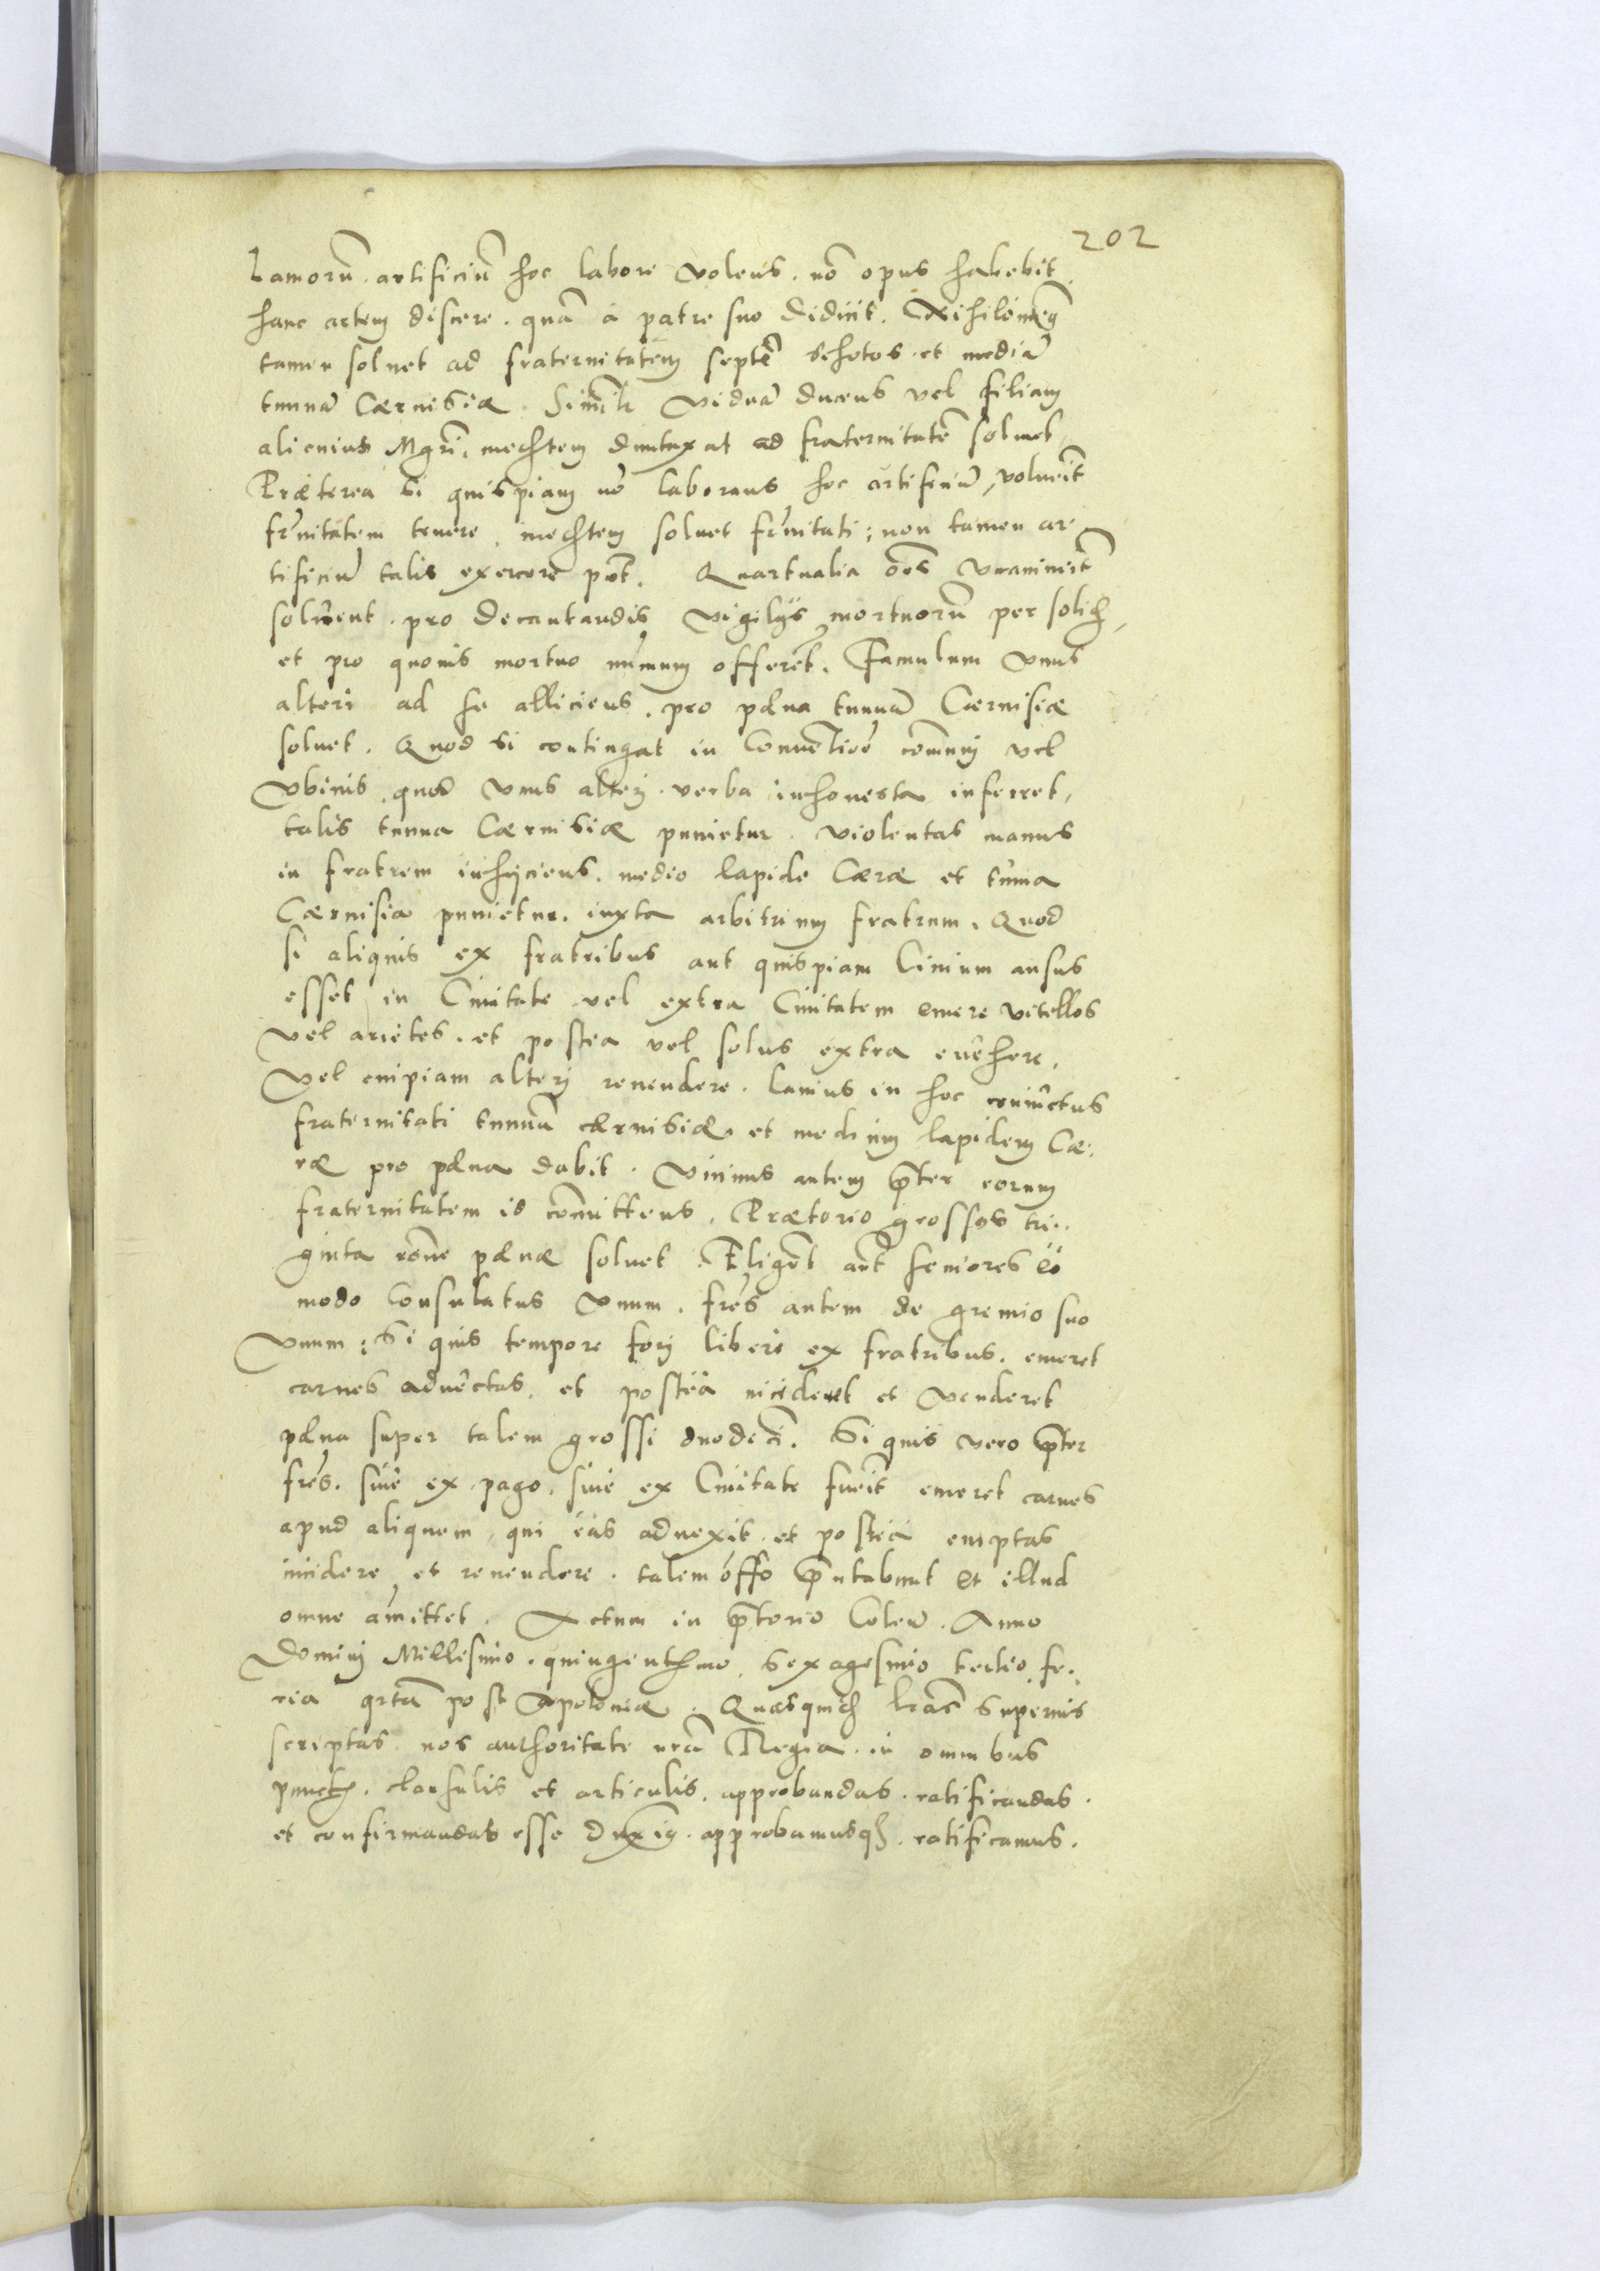 202
Laniorũ artificiũ hoc labore volens. nõ opus habebit
hanc artem discere. quã à patre suo didicit. Nihilomq
tamen soluet ad fraternitatem septẽ schotos et mediã
tunnã Cæruisiæ. Simili viduã ducens vel filiam
alicuius Mgri. mechtem duntaxat ad fraternitatẽ soluet,
Præterea si quispiam nõ laborans hoc artificiũ, voluerit
frnitatem tenere, mechtem soluet frnitati; non tamen ar
tificiũ talis exercere põt. Quartualia oẽs vnanimit
soluent. pro decantandis vigilijs mortuorũ per solid,
et pro quouis mortuo nũmum offerẽt. Famulum vnus
alteri ad se alliciens. pro pæna tunnã Cæruisiæ
soluet. Quod si contingat in Conuẽtioẽ cõmuni vel
vbiuis, quod vnus alteri verba inhonesta inferret,
talis tunna Cæruisiæ punietur. Violentas manus
in fratrem inhijciens. medio lapide Cæræ et tũna
Cæruisiæ punietur. iuxta arbitrium fratrum. Quod
si aliquis ex fratribus aut quispiam Ciuium ausus
esset in Ciuitate vel extra Ciuitatem emere vitellos
vel arietes. et postea vel solus extra euehere,
Vel cuipiam alteri reuendere. lanius in hoc conuictus
fraternitati tunnam cæruisiæ. et medium lapidem Cæ:
ræ pro pæna dabit. Vicinus autem pter eorum
fraternitatem id cõmittens. Prætorio grossos tri:
ginta rõne pænæ soluet. Eligẽt aut seniores eo
modo Consulatus vnum. fres autem de gremio suo
vnum; Si quis tempore fori liberi ex fratribus. emeret
carnes aduectas. et postea incideret et venderet
pæna super talem grossi duodeci. Si quis vero pter
fres. siue ex pago. siue ex Ciuitate fuerit emeret carnes
apud aliquem, qui eas aduexit. et postea emptas
incidere et reuendere. talem offo pntabunt et illud
omne amittet. Actum in ptorio Colen̄. Anno
Domini Millesimo. quingentesmo. Sexagesimo tertio fe:
ria qrta post Apoloniæ. Quasquidē lras superius
scriptas nos authoritate nrã Regia. in omnibus
punctis. clausulis et articulis. approbandas. ratificandas.
et confirmandas esse duxim. approbamusq. ratificamus.